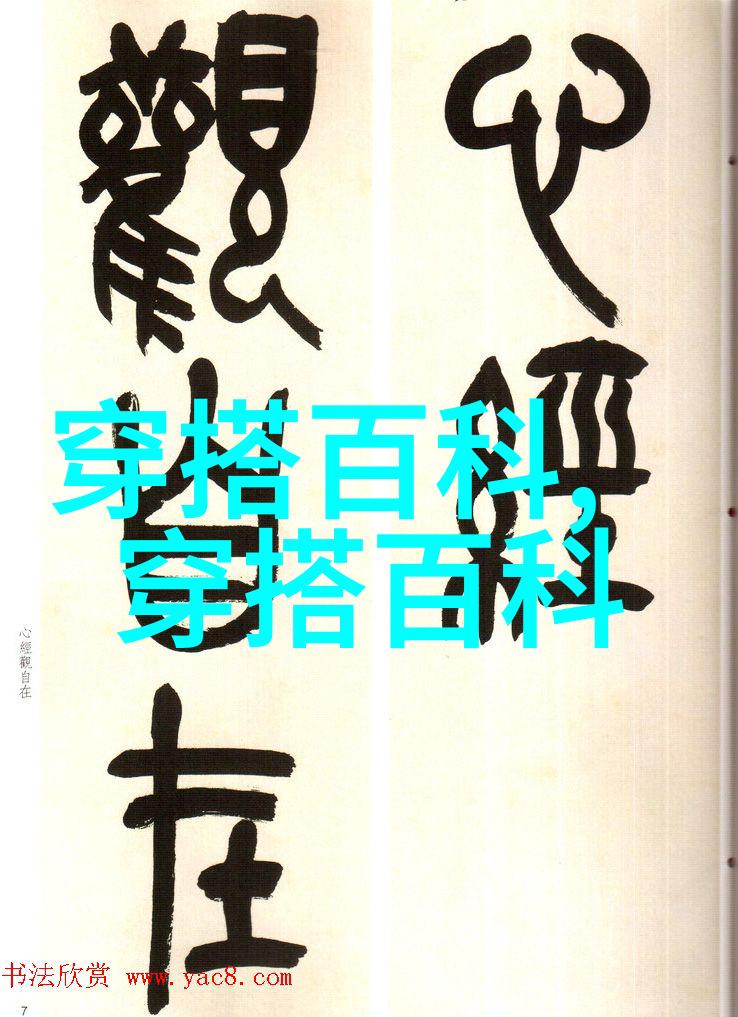 心經
觀自在
穿搭百科,
穿搭百科
心經觀自在
书法欣赏 www.yac8.com
7